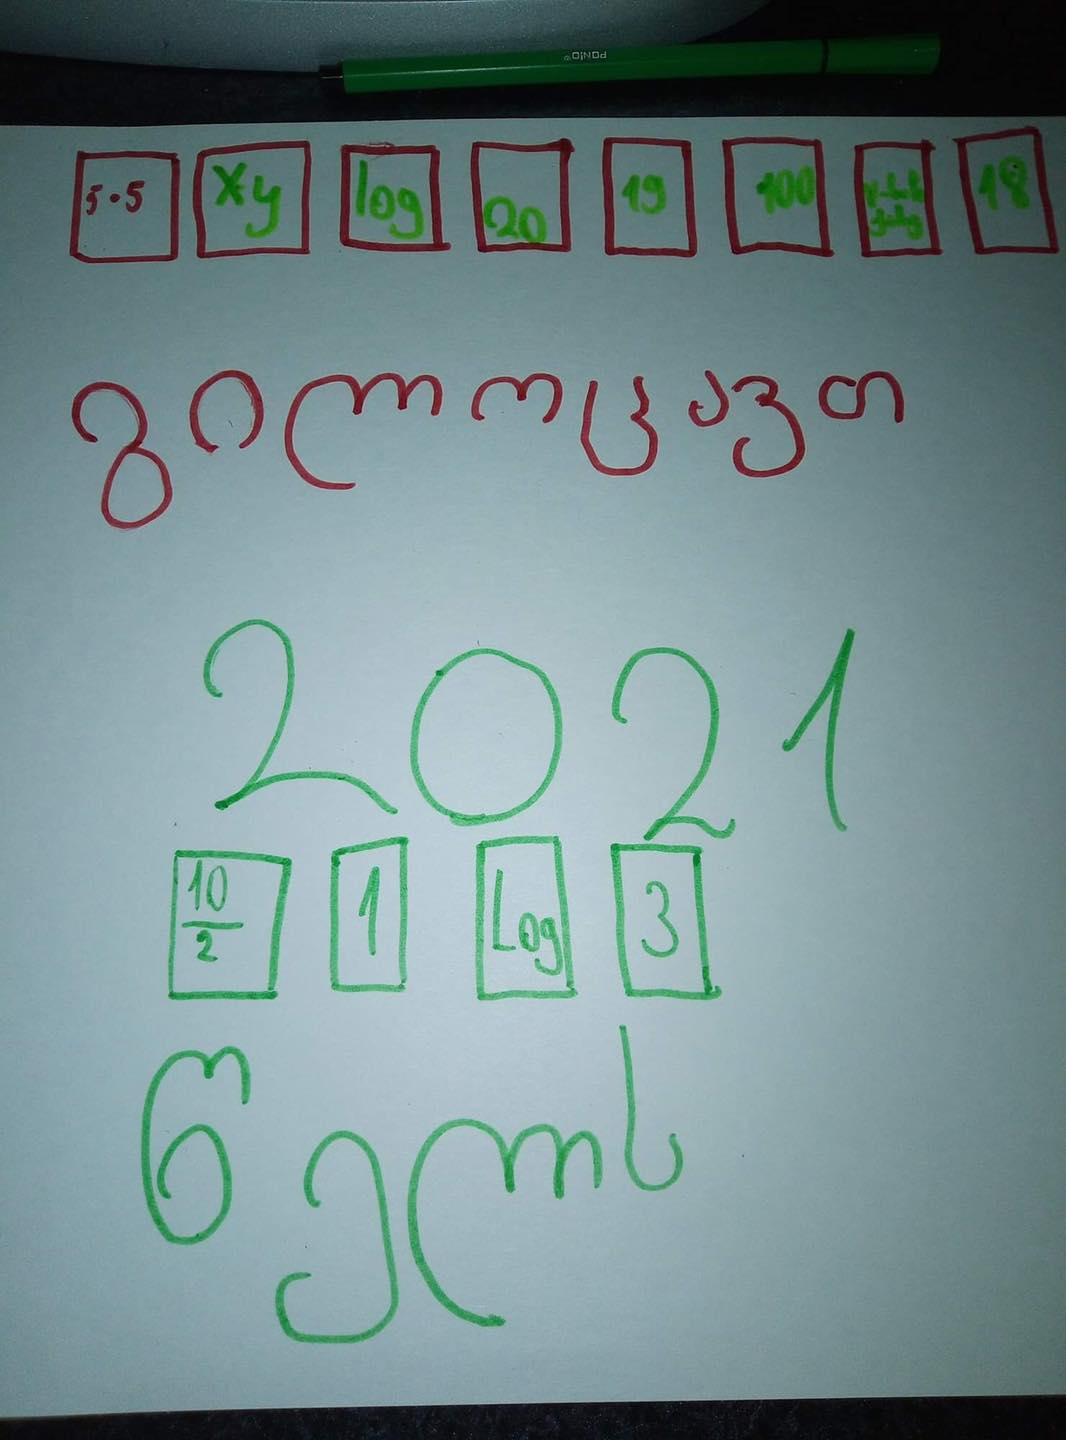 PONIO
5·5 xy log 20 19 100 18
გილოცავთ
2021
10/2 1 Log 3
წელს